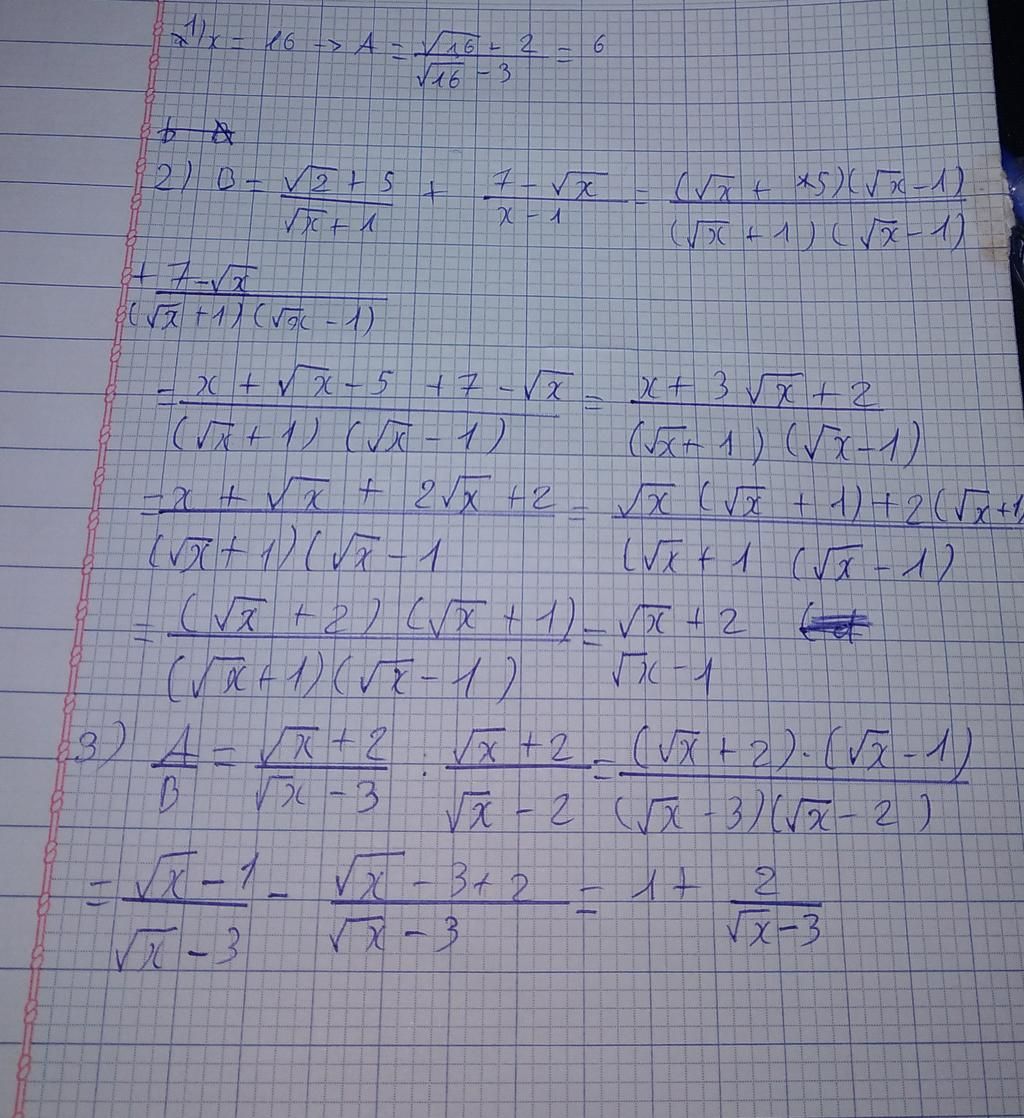 1) x = 16 -> A = (√16 + 2)/(√16 - 3) = 6
2) B = (√2 + 5)/(√x + 1) + (7 - √x)/(x - 1) = ((√x + *5)(√x - 1))/((√x + 1)(√x - 1))
+ (7 - √x)/((√x + 1)(√x - 1))
= (x + √x - 5 + 7 - √x)/((√x + 1)(√x - 1)) = (x + 3√x + 2)/((√x + 1)(√x - 1))
= (x + √x + 2√x + 2)/((√x + 1)(√x - 1) = (√x(√x + 1) + 2(√x + 1)/((√x + 1 (√x - 1))
= ((√x + 2)(√x + 1))/((√x + 1)(√x - 1)) = (√x + 2)/(√x - 1)
3) A/B = (√x + 2)/(√x - 3) : (√x + 2)/(√x - 2) = ((√x + 2).(√x - 1))/((√x - 3)(√x - 2))
= (√x - 1)/(√x - 3) - (√x - 3 + 2)/(√x - 3) = 1 + 2/(√x - 3)